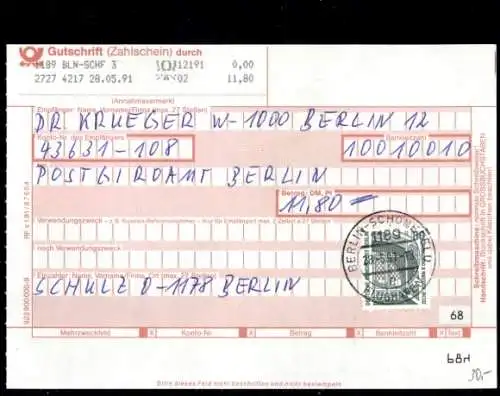 Gutschrift (Zahlschein) durch
1189 BLN-SCHF 3 0,00
2727 4217 28.05.91 11,80
(Annahmevermerk)
Empfänger: Name, Vorname/Firma (max. 27 Stellen)
DR KRUEGER W-1000 BERLIN 12
Konto-Nr. des Empfängers Bankleitzahl
43631-108 10010010
POSTGIROAMT BERLIN
Betrag: DM, Pf
11,80
Verwendungszweck
noch Verwendungszweck
BERLIN-SCHÖNEFELD
1189
Einzahler: Name, Vorname/Firma, Ort
SCHULZ O-1178 BERLIN
Mehrzweckfeld X Konto-Nr. X Betrag X Bankleitzahl X Text
68
Bitte dieses Feld nicht beschriften und nicht bestempeln
Schreibmaschine: normale Schreibweise!
Handschrift: Blockschrift in GROSSBUCHSTABEN
30,-